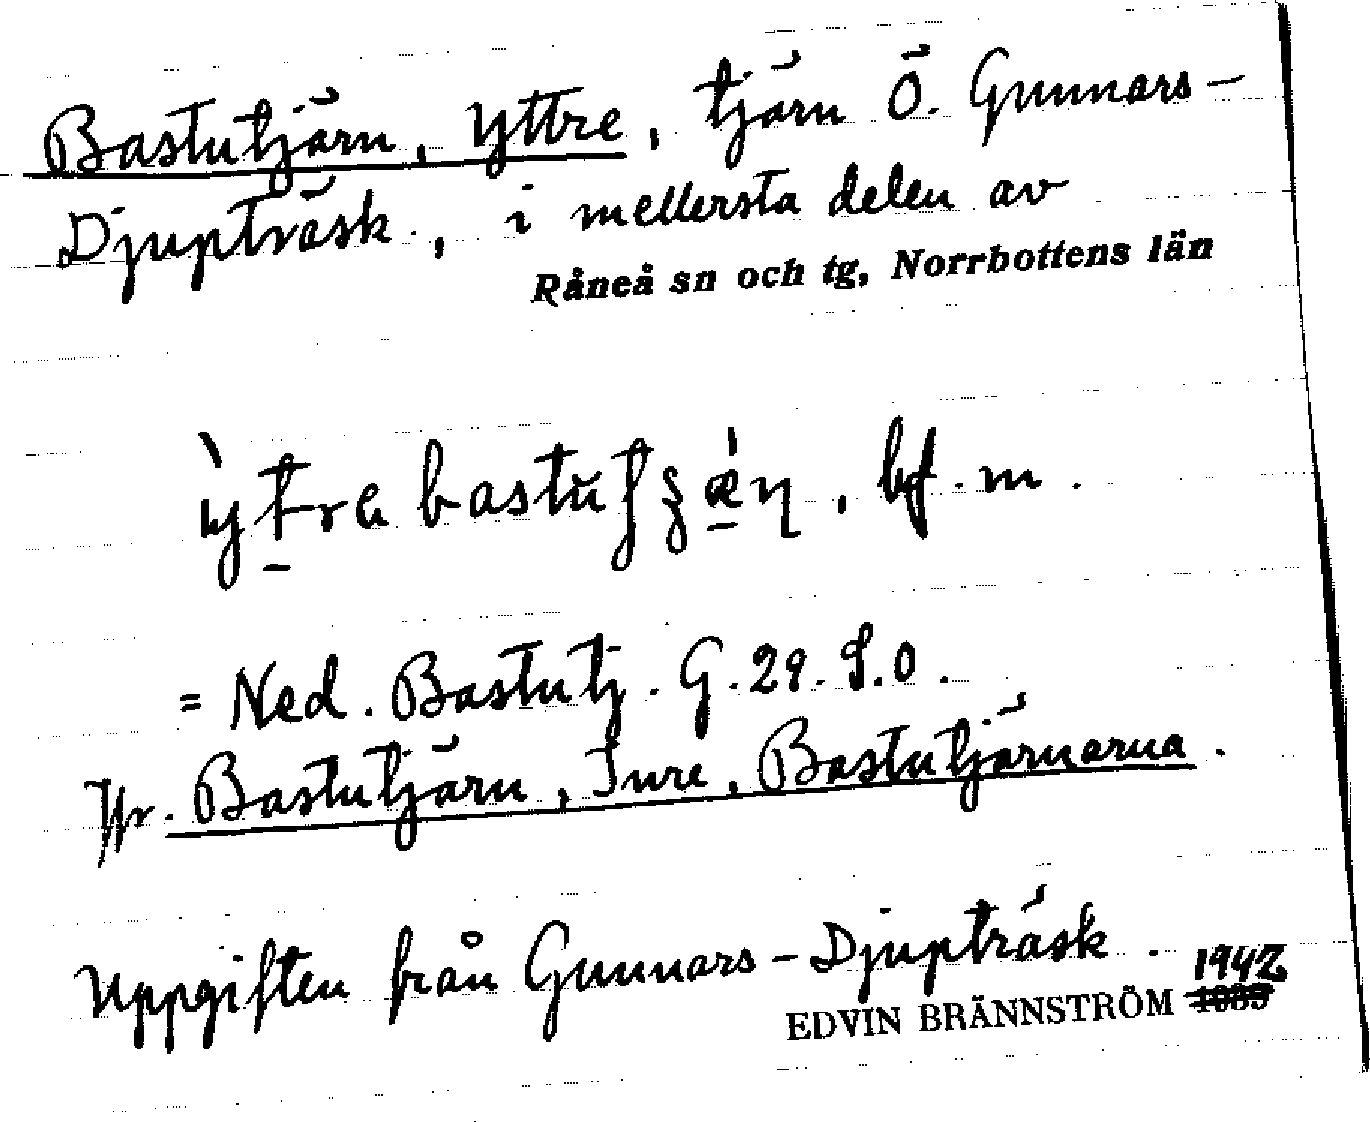 Bastutjärn, Yttre, tjärn Ö. Gunnars-
Djupträsk., i mellersta delen av
Råneå sn och tg, Norrbottens län
bf. m.
= Ned. Bastutj. G. 29. S.O.
Jfr. Bastutjärn, Inre, Bastutjärnarna.
Uppgiften från Gunnars-Djupträsk.
1942
EDVIN BRÄNNSTRÖM